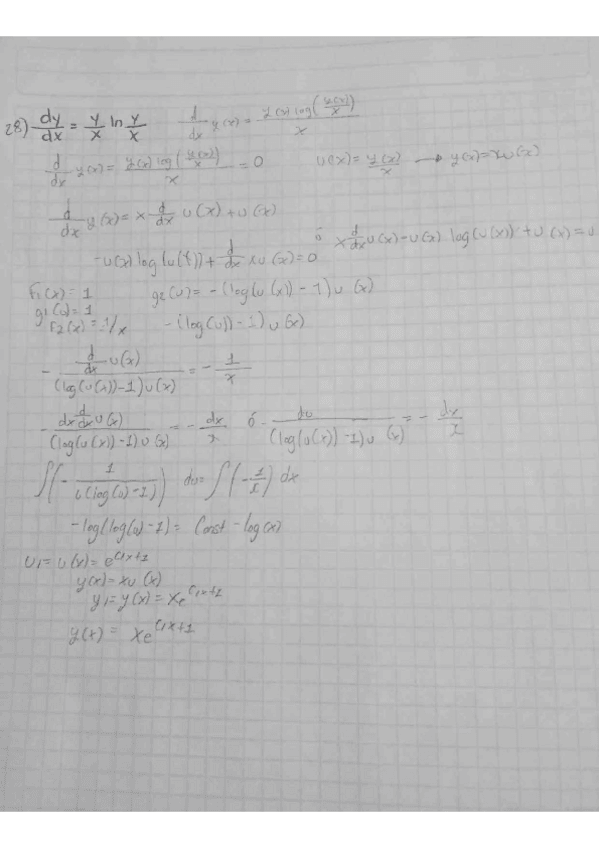 28) dy/dx = y/x ln y/x    d/dx y(x) = y(x) log(y(x)/x)/x
d/dx y(x) = y(x) log(y(x)/x)/x = 0    u(x) = y(x)/x → y(x) = xu(x)
d/dx y(x) = x d/dx u(x) + u(x)
-u(x) log(u(x)) + d/dx xu(x) = 0    ó x d/dx u(x) - u(x) log(u(x)) + u(x) = 0
F1(x) = 1    g2(u) = -(log(u(x)) - 1) u(x)
g1(u) = 1
F2(x) = 1/x    -(log(u)) - 1) u(x)
- d/dx u(x)/(log(u(x)) - 1) u(x) = - 1/x
- dx d/dx u(x)/(log(u(x)) - 1) u(x) = - dx/x    ó - du/(log(u(x)) - 1) u(x) = - dx/x
∫(- 1/u(log(u) - 1)) du = ∫(- 1/x) dx
-log(log(u) - 1) = Const - log(x)
u1 = u(x) = e^C1x+1
y(x) = xu(x)
y1 = y(x) = xe^C1x+1
y(x) = xe^C1x+1